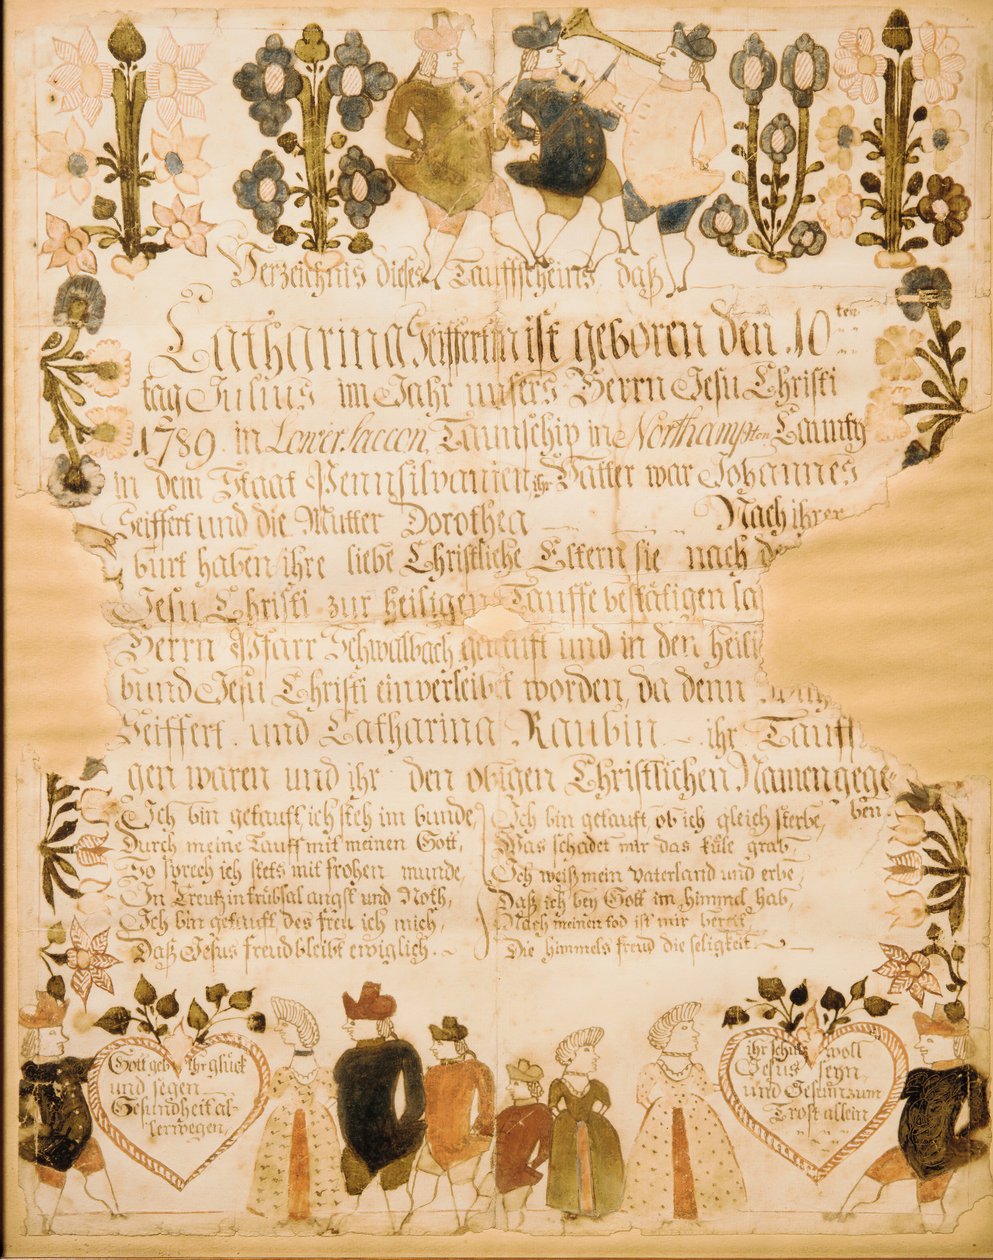 Verzeichnis dieses Tauffscheins daß
Catharina Seiffertin ist geboren den 10ten
tag Julius im Jahr unsers Herrn Jesu Christi
1789. in Lower Saccon, Taunschip in Northampton Caunty
in dem Staat Pennsilvanien, ihr Vatter war Johannes
Seiffert und die Mutter Dorothea Nach ihrer
burt haben ihre liebe Christliche Eltern sie nach
Jesu Christi zur heiligen Tauffe bestätigen
Herrn Pfarr Schwalbach getauft und in den
bund Jesu Christi einverleibet worden, da denn
Seiffert und Catharina Raubin ihr Tauff
gen waren und ihr den obigen Christlichen Namen gege-
ben.
Ich bin getauft, ich steh im bunde,
Durch meine Tauff mit meinen Gott,
So sprech ich stets mit frohen munde,
In Creutz in trübsal angst und Noth,
Ich bin getauft, des freu ich mich,
Daß Jesus freud bleibet ewiglich.
Ich bin getauft, ob ich gleich sterbe,
Was schadet mir das küle grab,
Ich weiß mein vaterland und erbe,
Daß ich bey Gott im himmel hab,
Nach meinen tod ist mir bereit,
Die himmels freud die seligkeit.
Gott geb ihr glück
und segen
Gesundheit al-
lerwegen,
ihr schutz woll
Jesus seyn
und Gesum zum
Trost allein